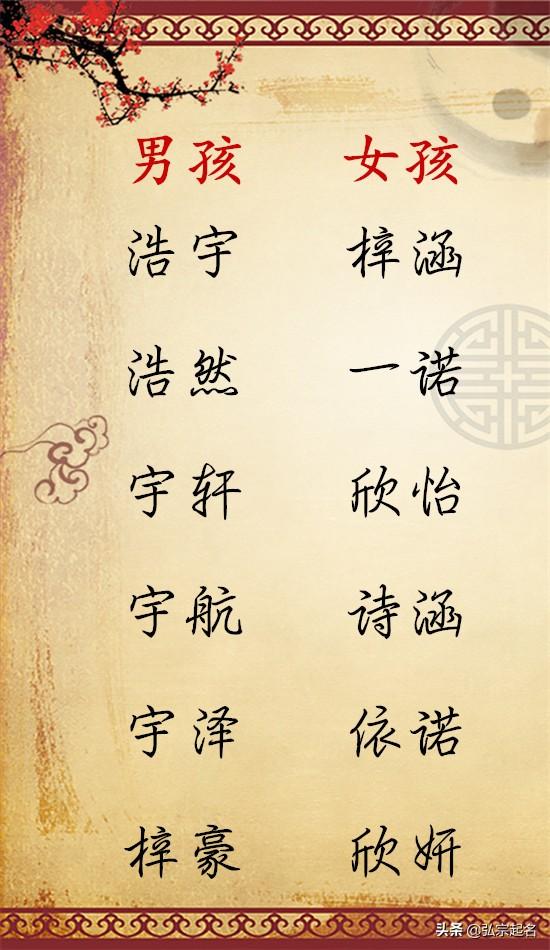 男孩 女孩
浩宇 梓涵
浩然 一诺
宇轩 欣怡
宇航 诗涵
宇泽 依诺
梓豪 欣妍
头条 @弘宗起名